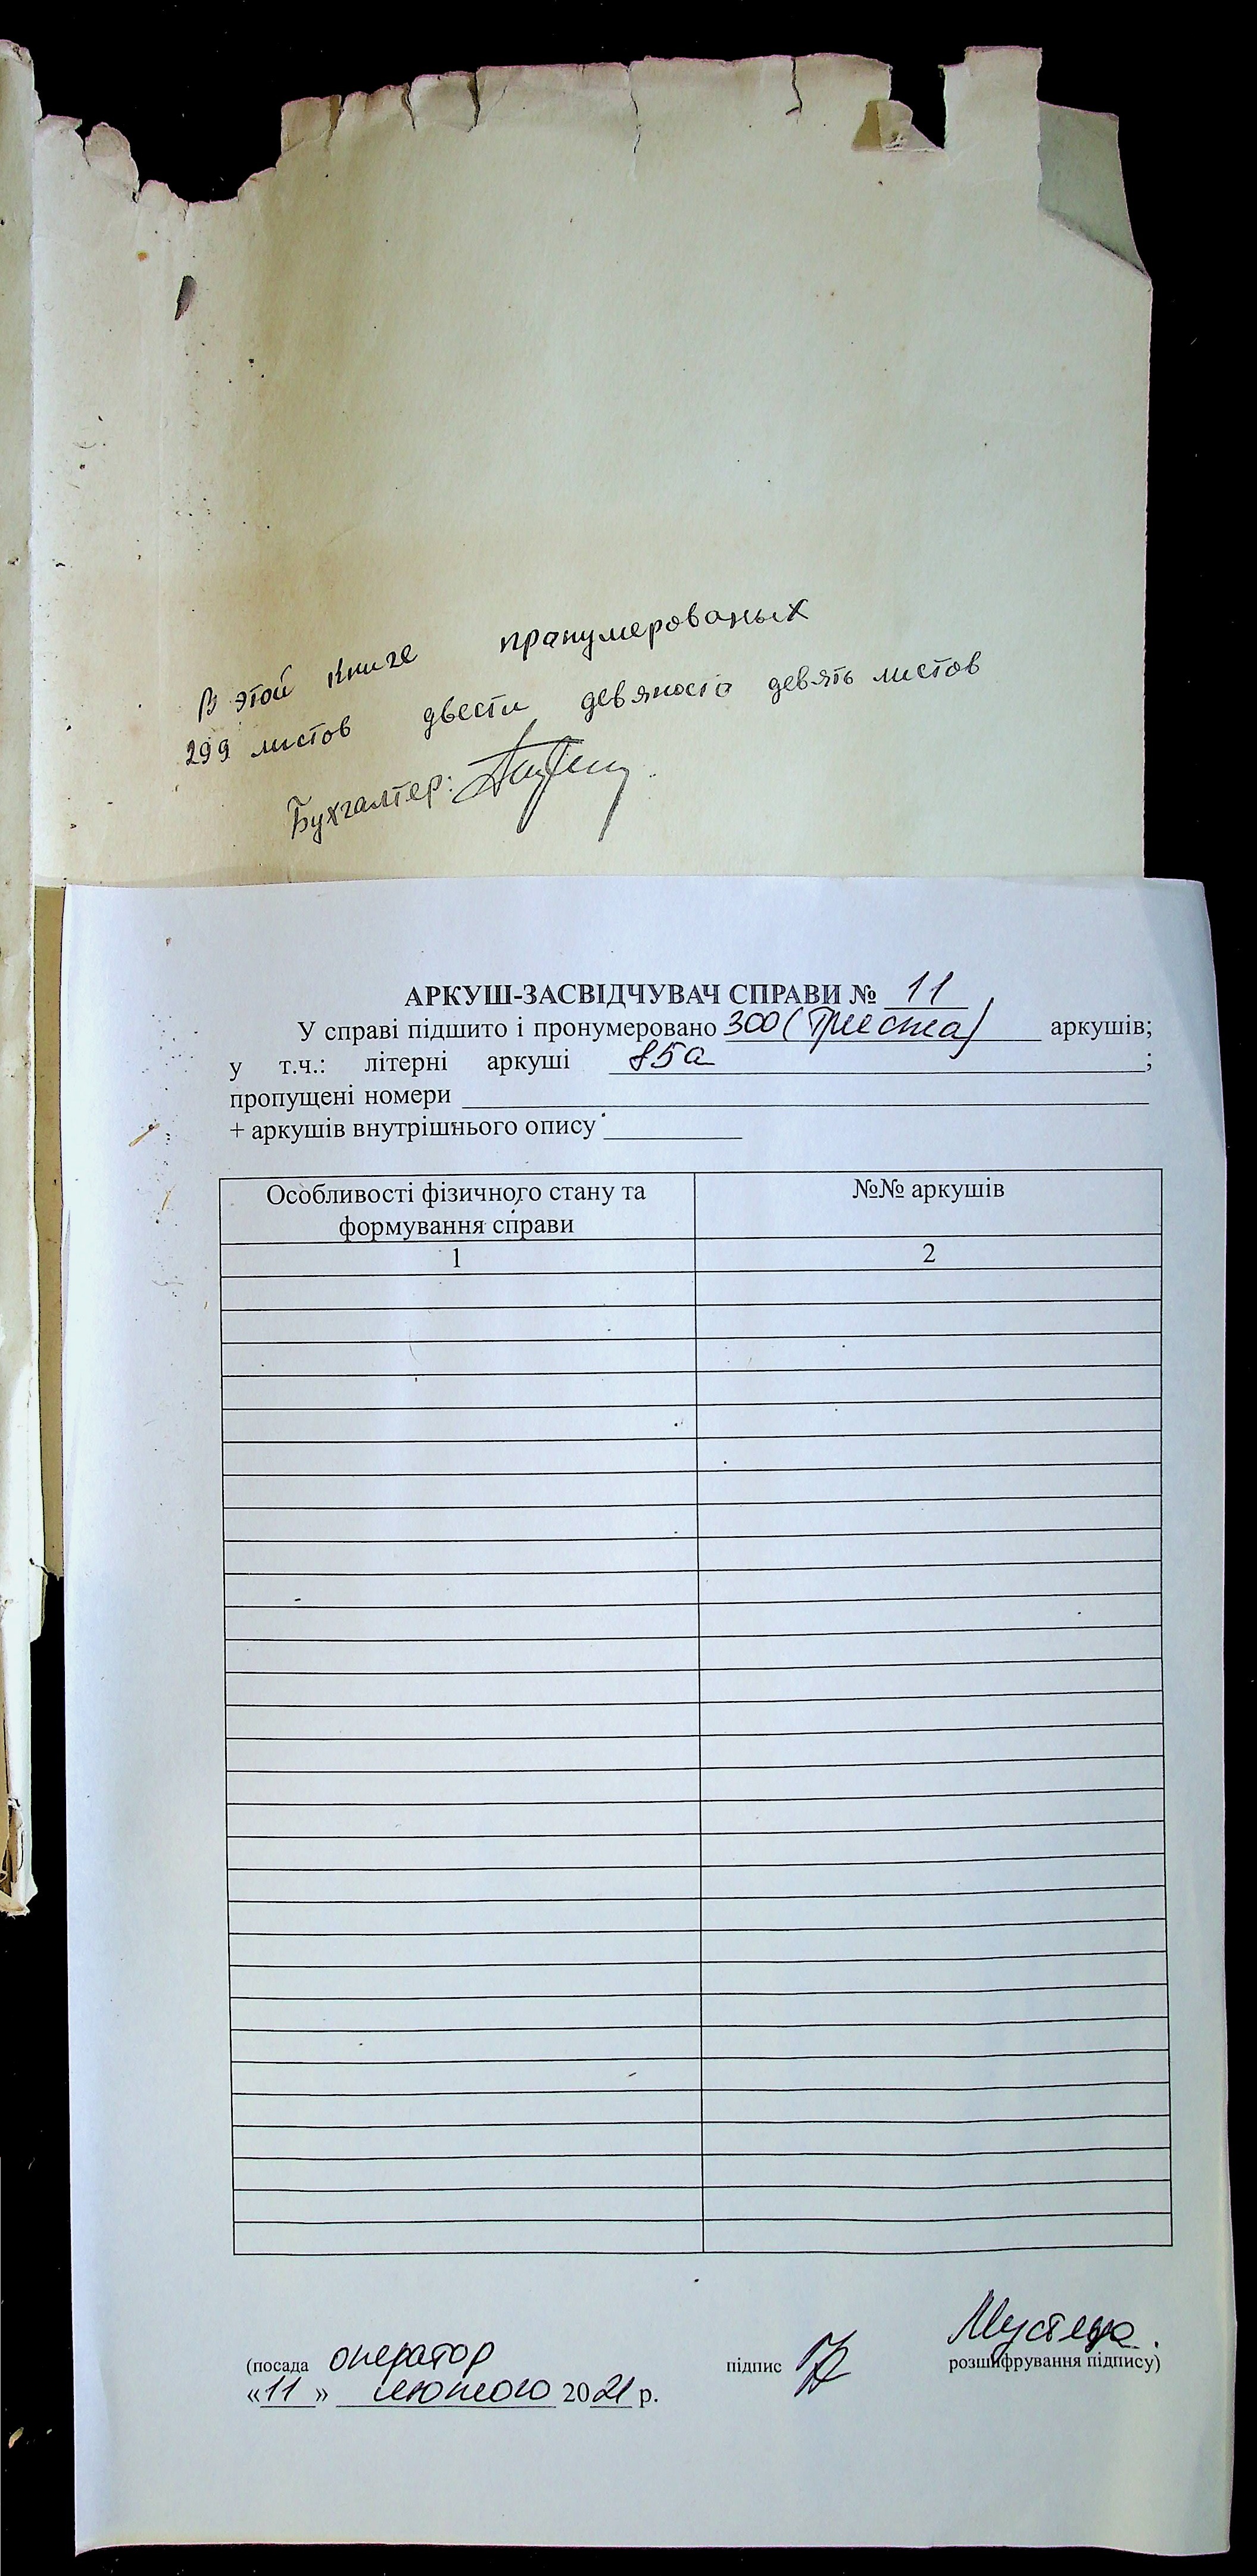 В этой книге пранумерованых
299 листов двести девяноста девять листов
Бухгалтер:
АРКУШ-ЗАСВІДЧУВАЧ СПРАВИ № 11
У справі підшито і пронумеровано 300 (триста) аркушів;
у т.ч.: літерні аркуші 85а ;
пропущені номери
+ аркушів внутрішнього опису
Особливості фізичного стану та №№ аркушів
формування справи
1 2
(посада оператор підпис розшифрування підпису)
«11» лютого 2021 р.